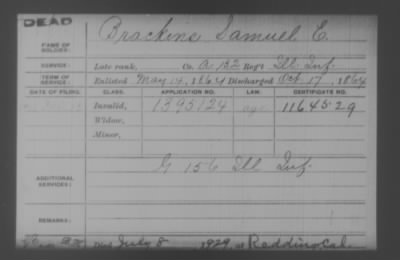 DEAD
NAME OF SOLDIER: Brackins Samuel E.
SERVICE: Late rank, Co. A. 132 Reg't Ill. Inf.
TERM OF SERVICE: Enlisted May 14, 1864 Discharged Oct. 17, 1864
DATE OF FILING. CLASS. APPLICATION NO. LAW. CERTIFICATE NO.
Invalid, 1395124 age 1164529
Widow,
Minor,
ADDITIONAL SERVICES: G 156 Ill Inf.
REMARKS:
Died July 8, 1929, at Redding Cal.